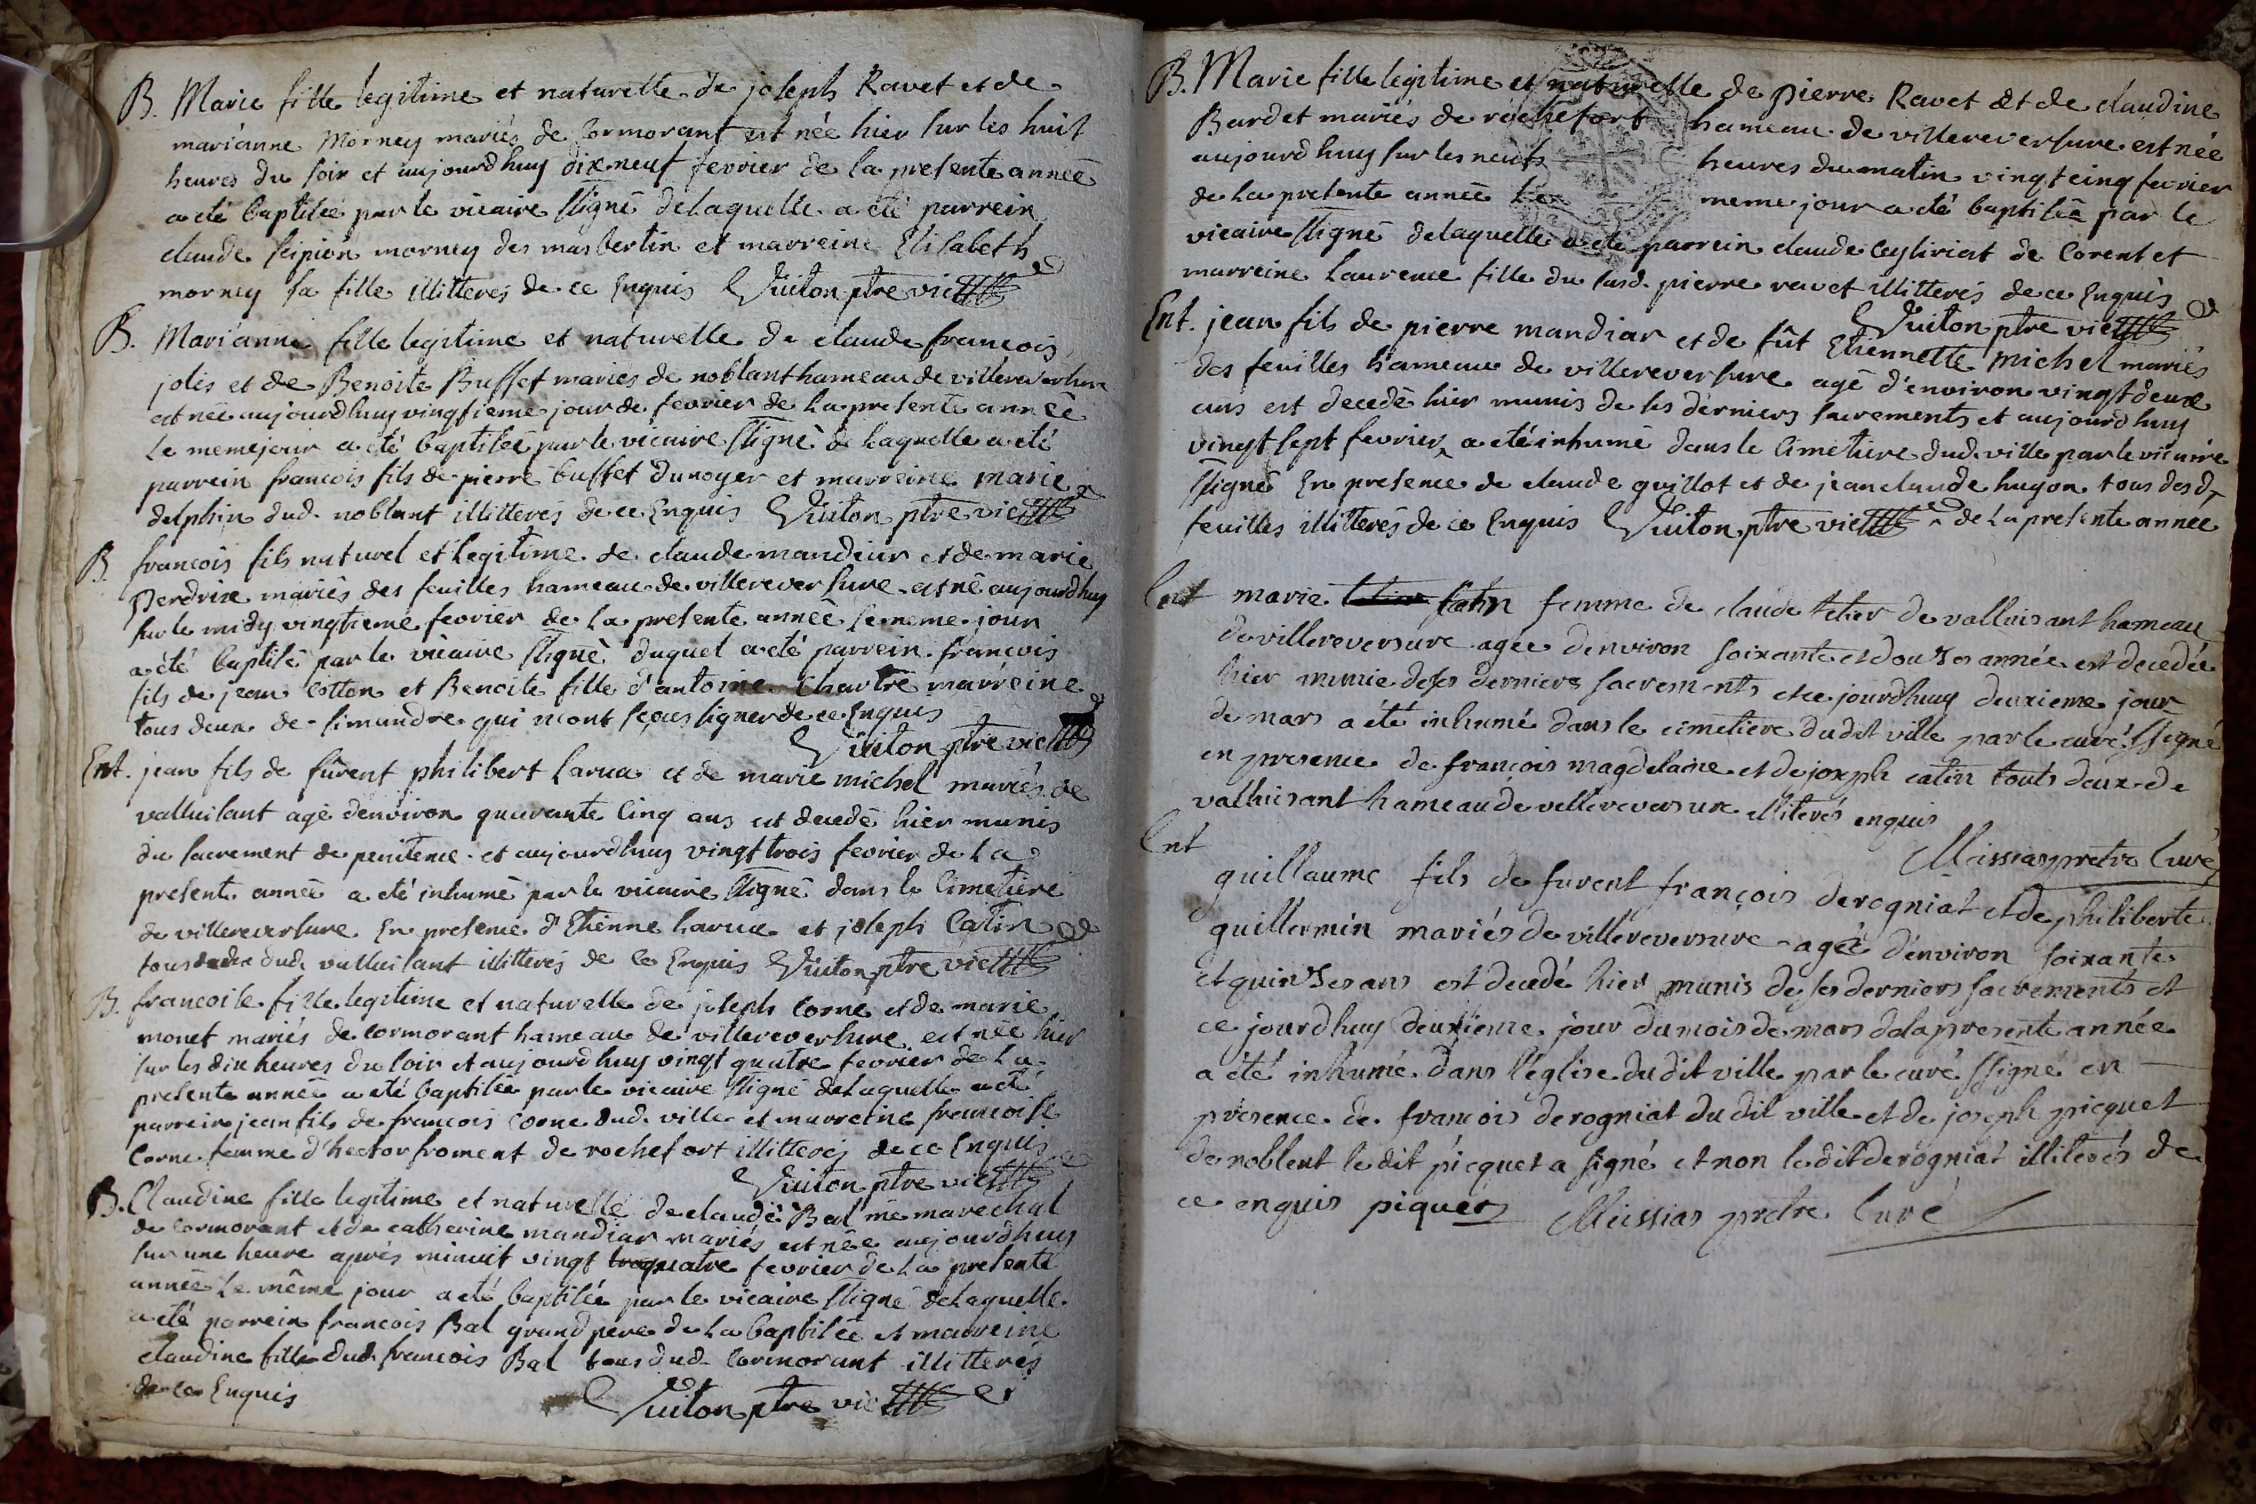 B. Marie fille legitime et naturelle de joseph Ravet et de
marianne Morney mariés de Cormorant est née hier sur les huit
heures du soir et aujourdhuy dix neuf fevrier de la presente année
a été baptisée par le vicaire ssigné delaquelle a été parrein
claude scipion morney des mas bertin et marreine Elisabeth
morney sa fille illitterés de ce Enquis Vuiton ptre vic
B. Marianne fille legitime et naturelle de claude francois
jolis et de Benoite Buffet mariés de noblant hameau de villereversure
est née aujourdhuy vingtieme jour de fevrier de la presente année
le meme jour a été baptisée par le vicaire ssigné de laquelle a été
parrein francois fils de pierre buffet dunoyer et marreine marie
delphin dud. noblant illitteres de ce Enquis Vuiton ptre vic
B. francois fils naturel et legitime de claude mandiar et de marie
Perdrix mariés des feuilles hameau de villereversure est né aujourdhuy
sur le midy vingtieme fevrier de la presente année le meme jour
a été baptisé par le vicaire ssigné duquel a été parrein francois
fils de jean Cotton et Benoite fille d'antoine Chartre marreine
tous deux de simandre qui n'ont sçeus signer de ce Enquis
Vuiton ptre vic
Ent. jean fils de fûrent philibert Larue et de marie michel mariés de
valluisant agé denviron quarante cinq ans est decedé hier munis
du sacrement de penitence et aujourdhuy vingt trois fevrier de la
presente année a été inhumé par le vicaire ssigné dans le Cimetiere
de villereversure En presence d'Etienne Larue et joseph Catin
tous deux dud. valluisant illitterés de ce Enquis Vuiton ptre vic
B. francoise fille legitime et naturelle de joseph Corne et de marie
monet mariés de cormorant hameau de villereversure est née hier
sur les dix heures du soir et aujourdhuy vingt quatre fevrier de la
presente année a été baptisée par le vicaire ssigné de laquelle a été
parrein jean fils de francois Corne dud. ville et marreine francoise
Corne femme d'hector froment de rochefort illitterés de ce Enquis
Vuiton ptre vic
B. Claudine fille legitime et naturelle de claude Bal me marechal
de cormorant et de catherine mandiar mariés est née aujourdhuy
sur une heure après minuit vingt quatre fevrier de la presente
année le même jour a été baptisée par le vicaire ssigné de laquelle
a été parrein francois Bal grand pere de la baptisée et marreine
claudine fille dud. francois Bal tous dud. Cormorant illitterés
de ce Enquis Vuiton ptre vic
B. Marie fille legitime et naturelle de pierre Ravet et de claudine
Bardet mariés de rochefort hameau de villereversure est née
aujourd huy sur les neufs heures du matin vingt cinq fevrier
de la presente année le meme jour a été baptisée par le
vicaire ssigné delaquelle a été parrein claude Ceyziriat de Corent et
marreine Laurence fille du susd. pierre ravet illitterés de ce Enquis
Vuiton ptre vic
Ent. jean fils de pierre mandiar et de fût Etiennette michel mariés
des feuilles hameau de villereversure agé d'environ vingt deux
ans est decedé hier munis de ses derniers sacrements et aujourd huy
vingt sept fevrier a été inhumé dans le Cimetiere dud. ville par le vicaire
ssigné En presence de claude guillot et de jean claude hugon tous des d.
feuilles illitterés de ce Enquis Vuiton ptre vic de la presente année
Ent marie catin femme de claude tetier de valluisant hameau
de villereversure agee denviron soixante et douzes année est decedée
hier munie de ses derniers sacrements et ce jourdhuy deuxieme jour
de mars a été inhumé dans le cimetiere du dit ville par le curé ssigné
en presence de françois magdelaine et de joseph catin touts deux de
valluisant hameau de villereversure illiterés enquis
Messias pretre Curé
Ent
guillaume fils de furent françois derogniat et de philiberte
guillermin mariés de villereversure agée d'environ soixante
et quinzes ans est decedé hier munis de ses derniers sacrements et
ce jourdhuy deuxieme jour du mois de mars dela presente année
a été inhumé dans l'église du dit ville par le curé ssigné en
presence de françois derogniat du dit ville et de joseph picquet
de noblent le dit picquet a signé et non le dit derogniat illiterés de
ce enquis piquet Messias pretre Curé